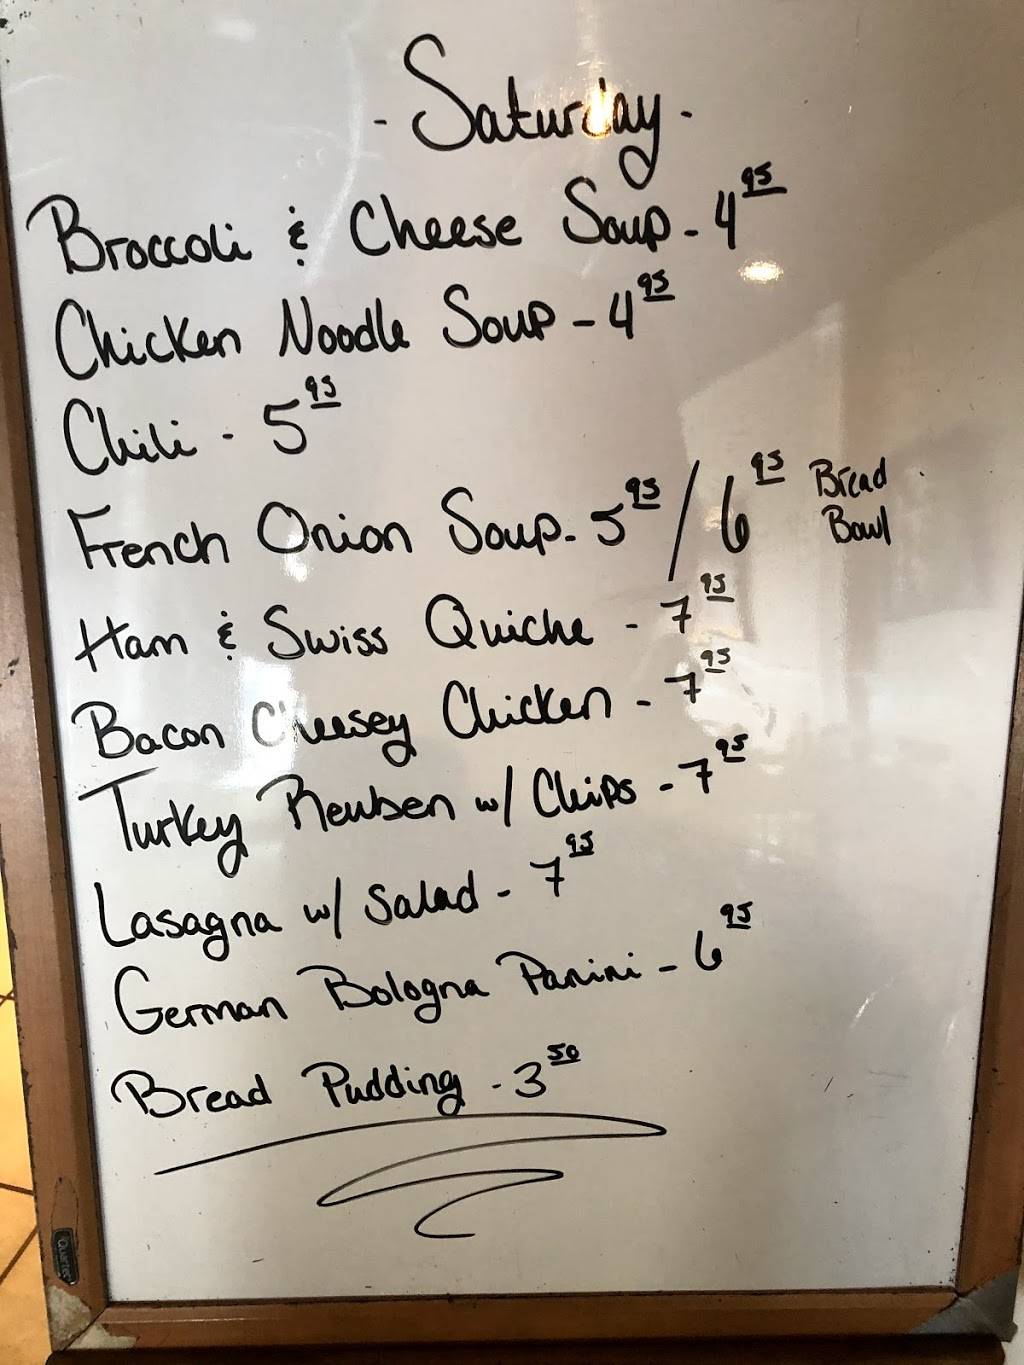 - Saturday -
Broccoli & Cheese Soup - 4 95
Chicken Noodle Soup - 4 95
Chili - 5 95
French Onion Soup - 5 95 / 6 95 Bread Bowl
Ham & Swiss Quiche - 7 95
Bacon Cheesey Chicken - 7 95
Turkey Reuben w/ Chips - 7 95
Lasagna w/ Salad - 7 95
German Bologna Panini - 6 95
Bread Pudding - 3 50
Quartet